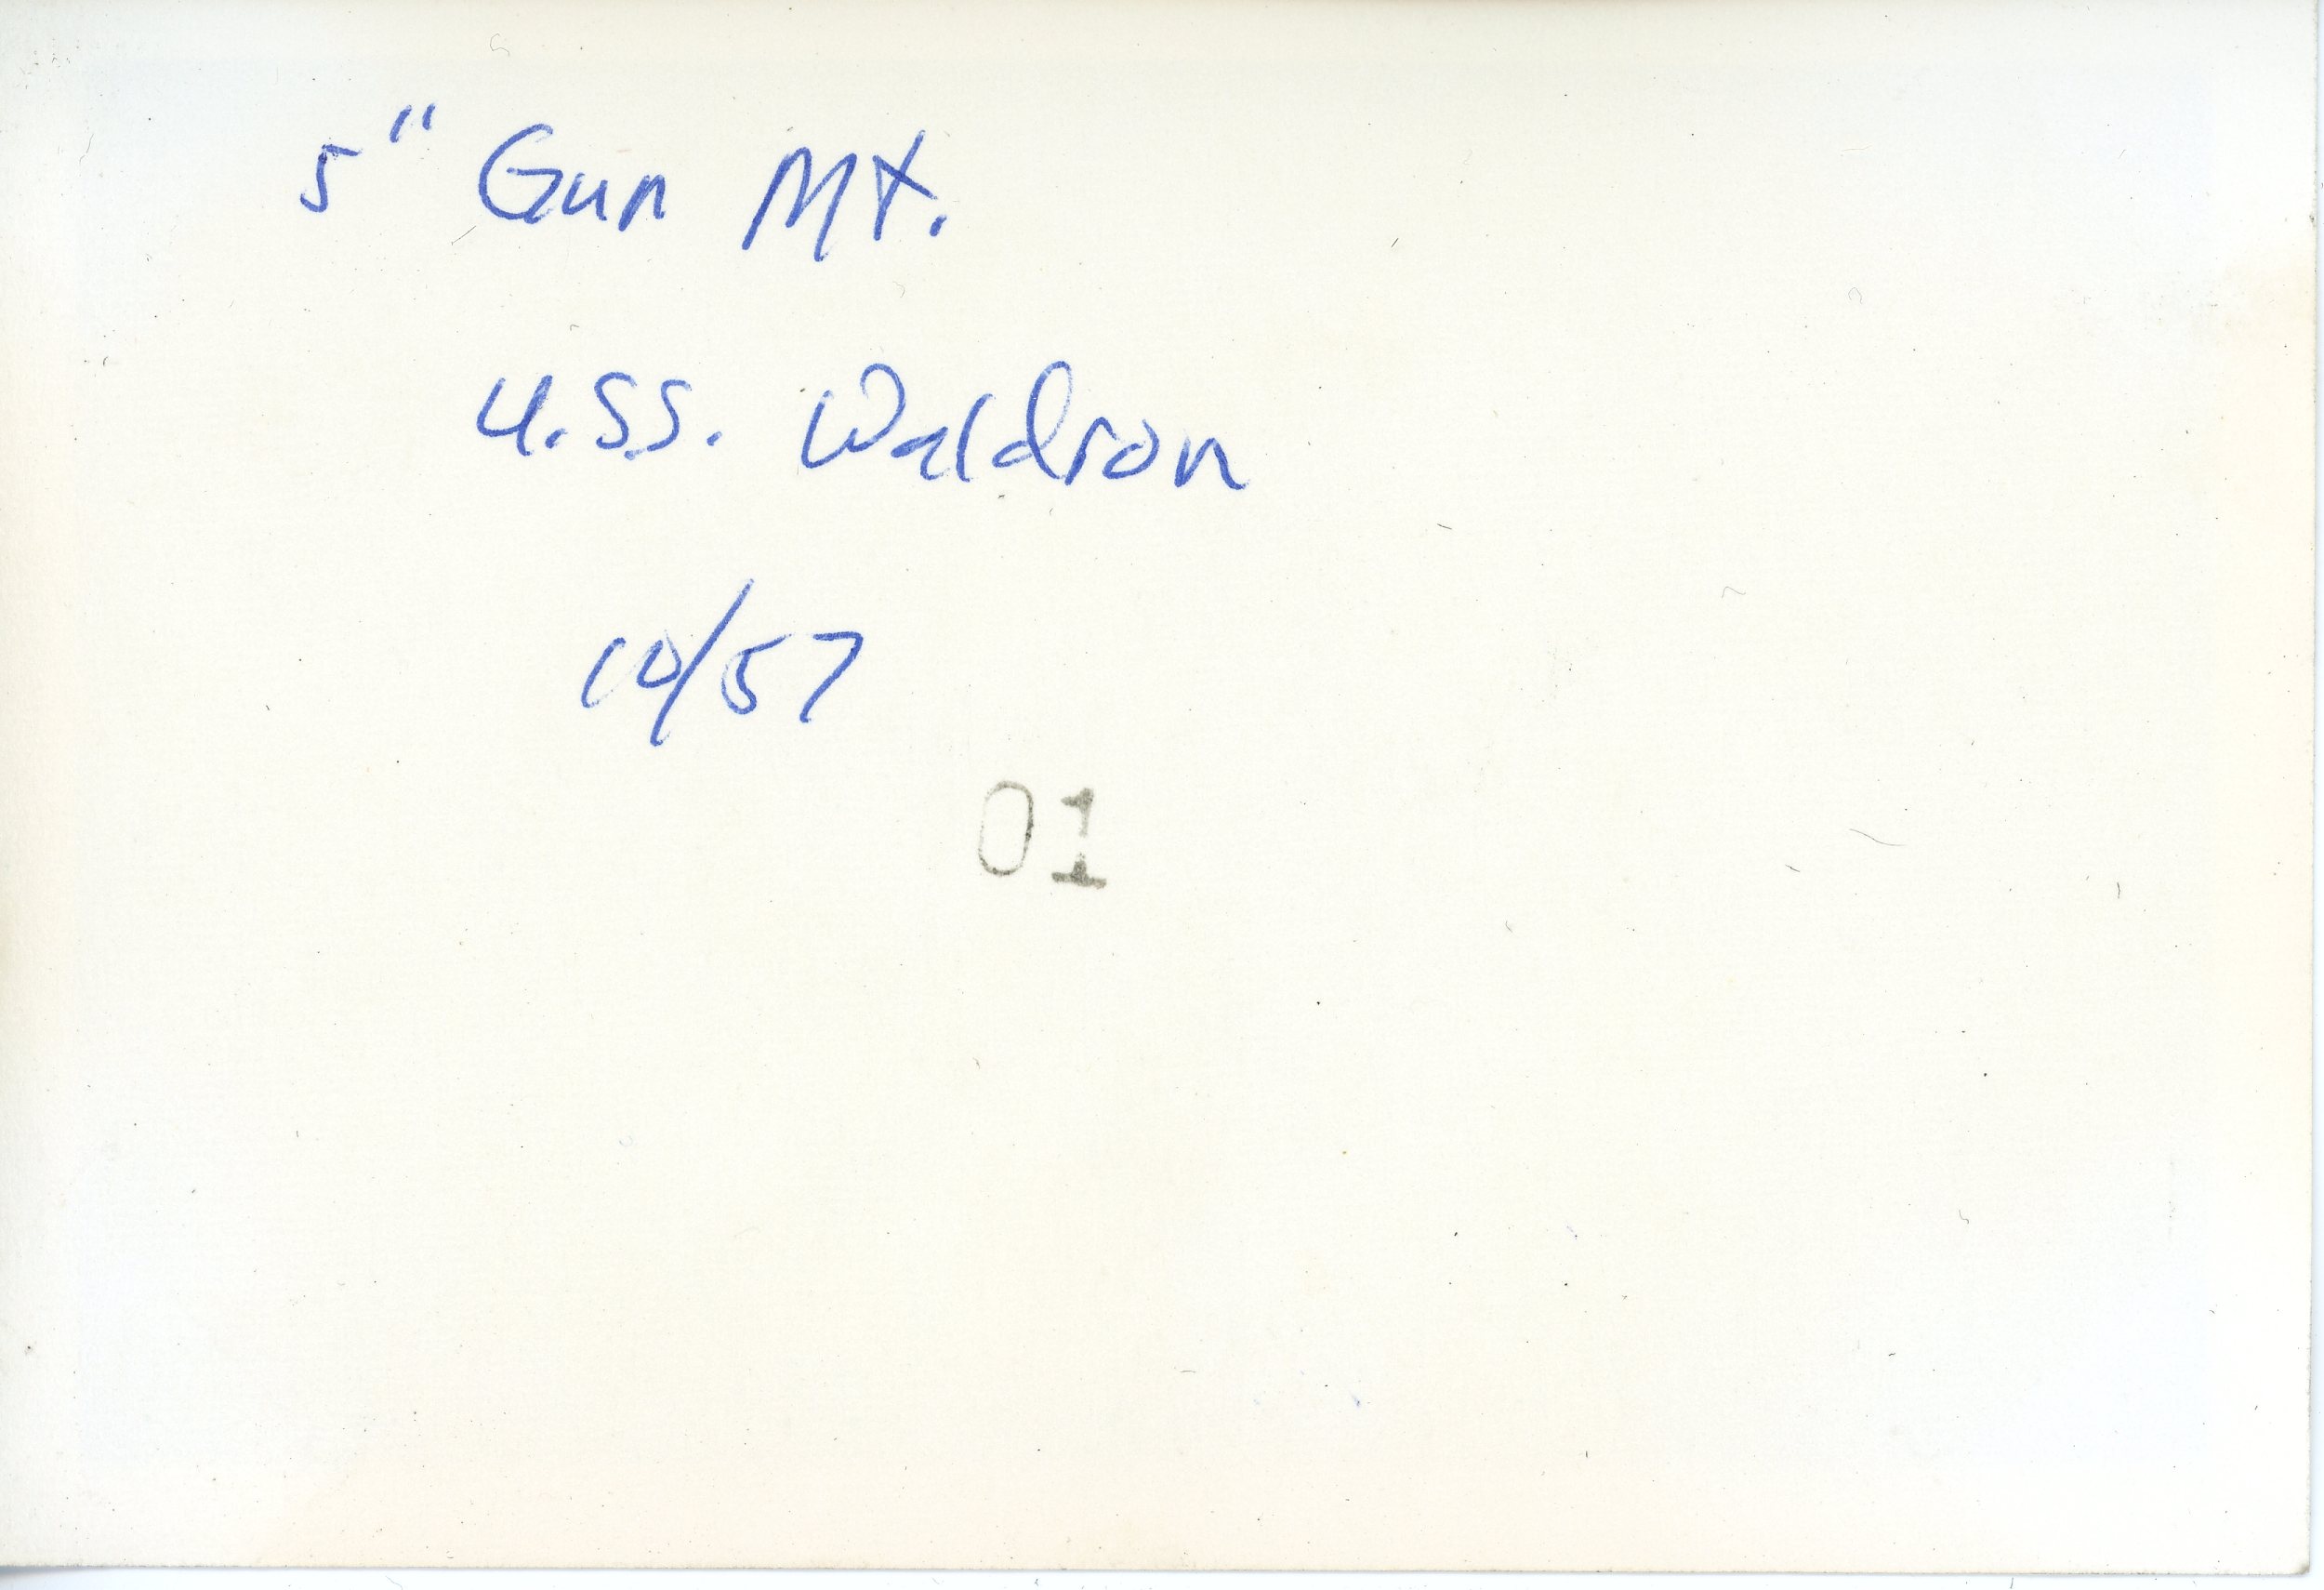 5" Gun Mt.
U.S.S. Waldron
10/57
01